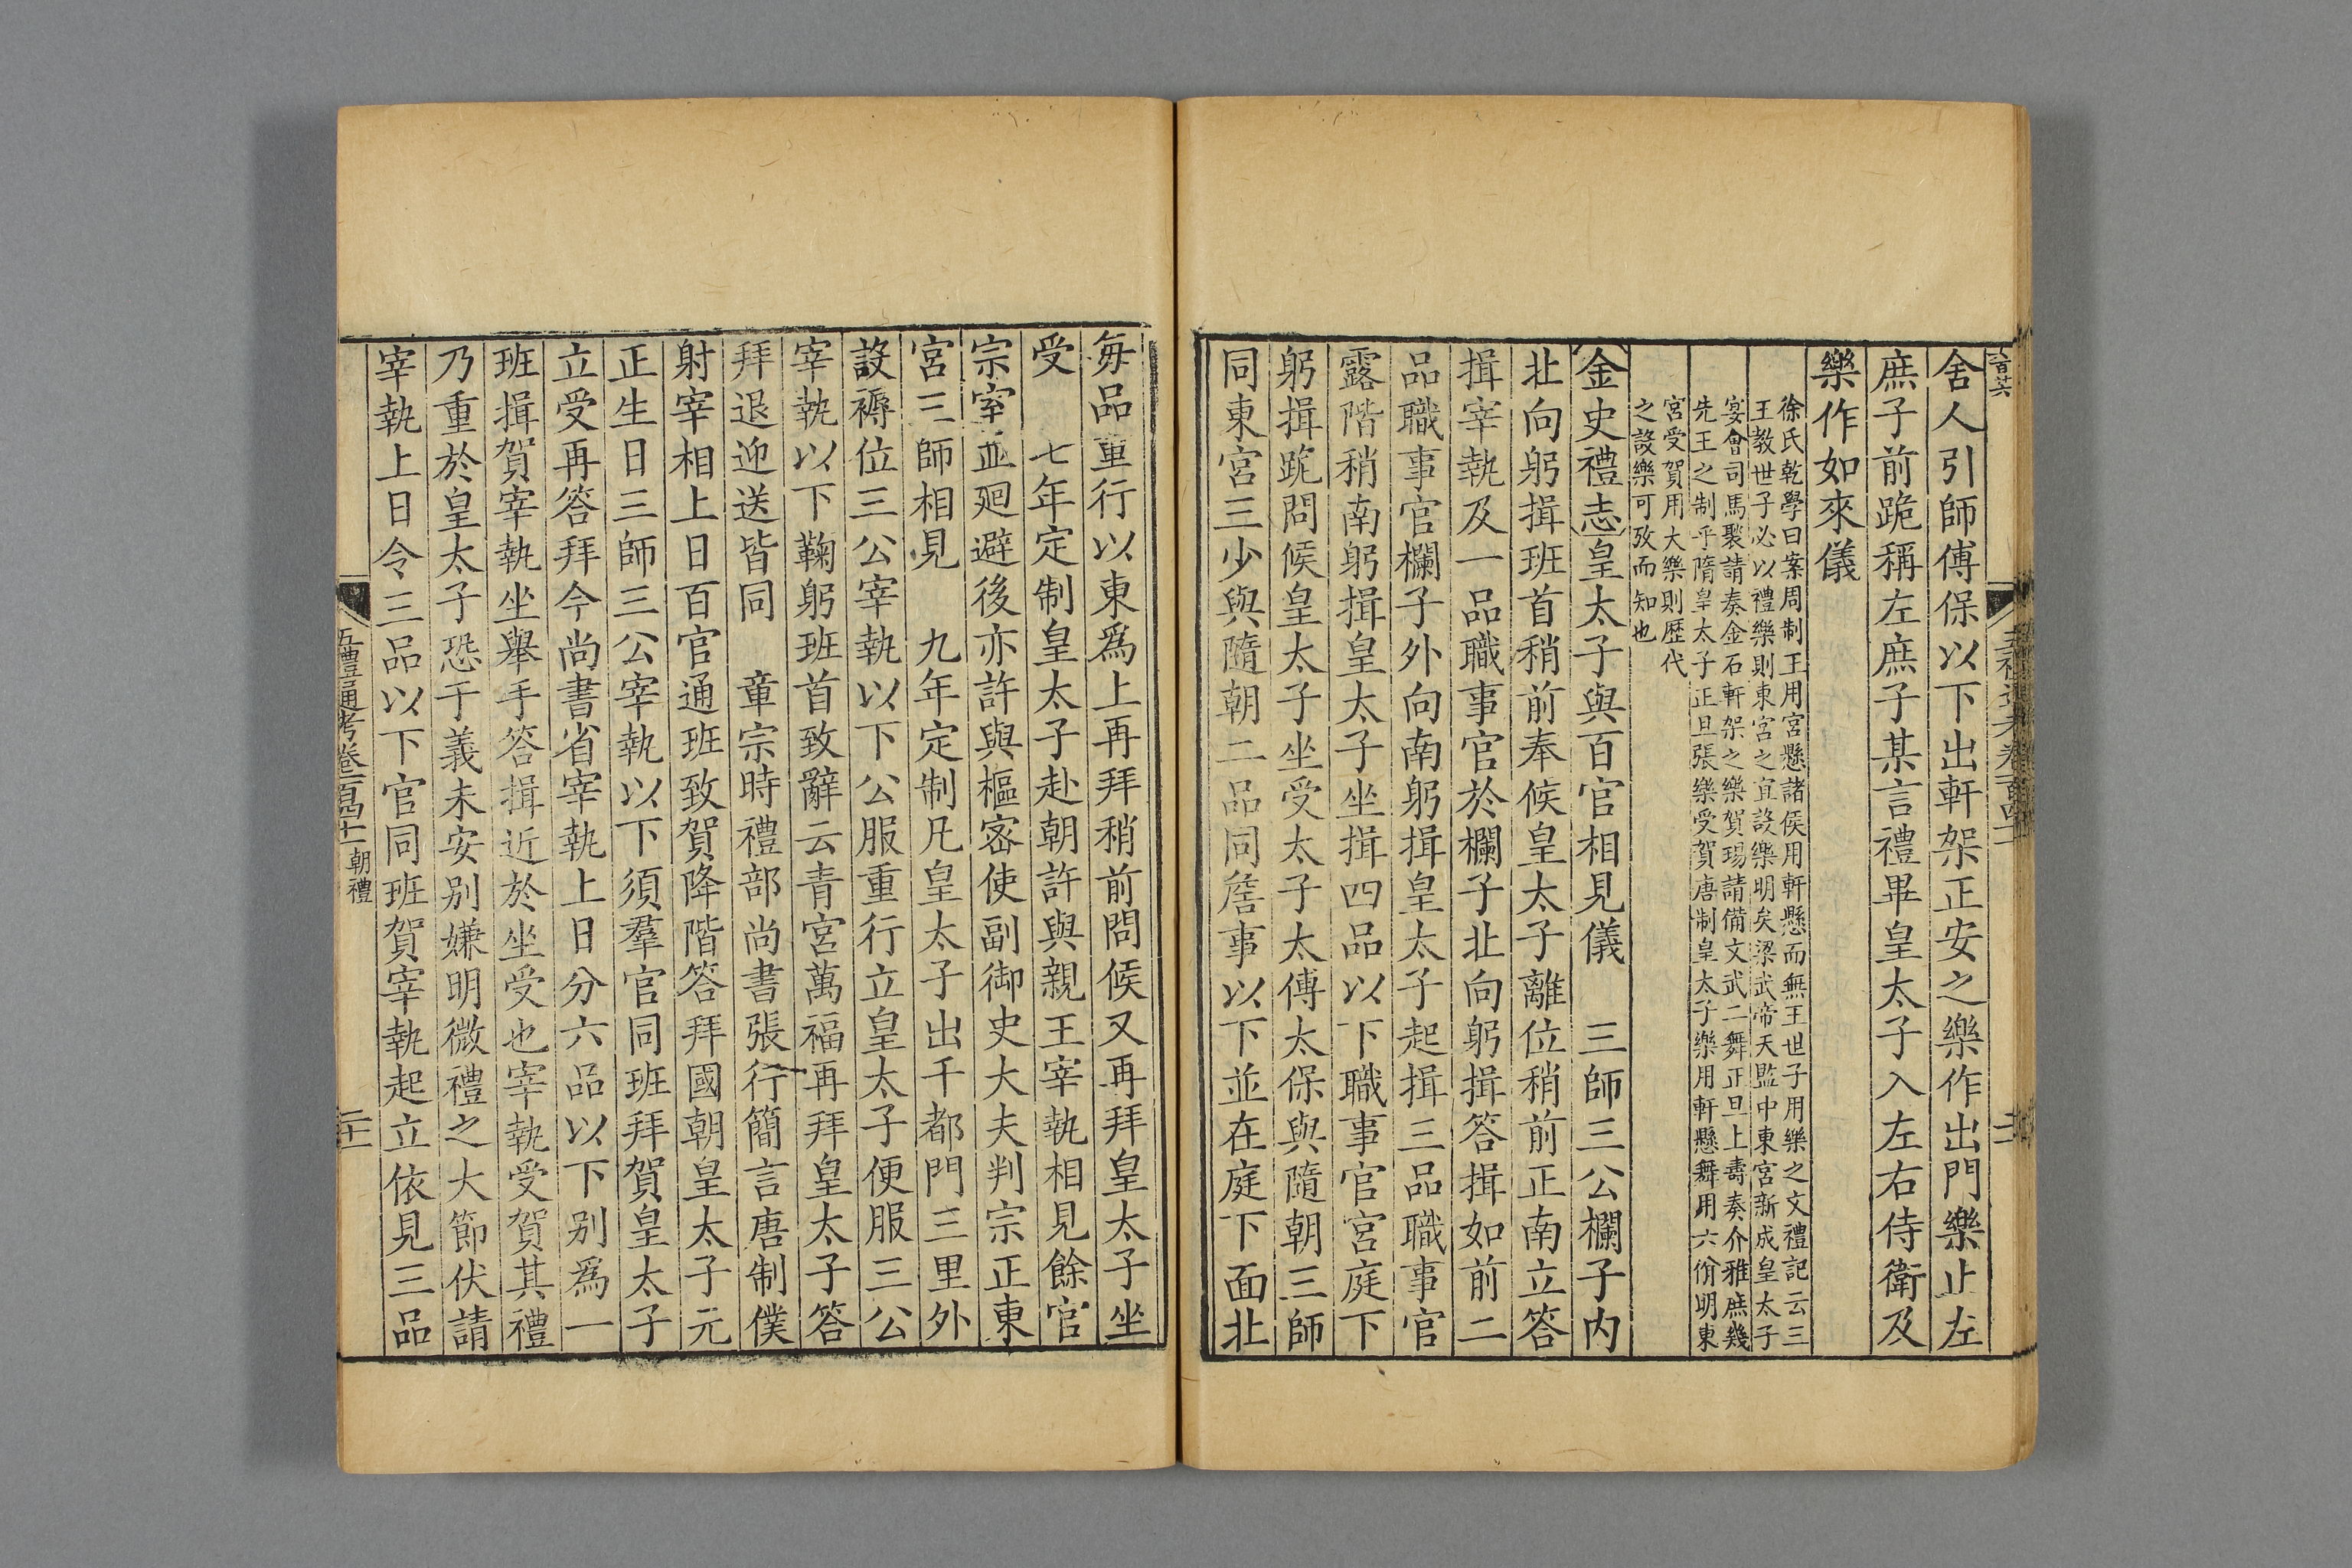 舍人引師傅保以下出軒架正安之樂作出門樂止左
庶子前跪稱左庶子某言禮畢皇太子入左右侍衛及
樂作如來儀
徐氏乾學曰案周制王用宮懸諸侯用軒懸而無王世子用樂之文禮記云三
王教世子必以禮樂則東宮之宜設樂明矣梁武帝天監中東宮新成皇太子
宴會司馬褧請奏金石軒架之樂賀瑒請備文武二舞正旦上壽奏介雅庶幾
先王之制乎隋皇太子正旦張樂受賀唐制皇太子樂用軒懸舞用六佾明東
宮受賀用大樂則歷代
之設樂可攷而知也
金史禮志皇太子與百官相見儀　三師三公欄子內
北向躬揖班首稍前奉候皇太子離位稍前正南立答
揖宰執及一品職事官於欄子北向躬揖答揖如前二
品職事官欄子外向南躬揖皇太子起揖三品職事官
露階稍南躬揖皇太子坐揖四品以下職事官宮庭下
躬揖跪問候皇太子坐受太子太傅太保與隨朝三師
同東宮三少與隨朝二品同詹事以下並在庭下面北
每品重行以東爲上再拜稍前問候又再拜皇太子坐
受　七年定制皇太子赴朝許與親王宰執相見餘官
宗室並廻避後亦許與樞密使副御史大夫判宗正東
宮三師相見　九年定制凡皇太子出千都門三里外
設褥位三公宰執以下公服重行立皇太子便服三公
宰執以下鞠躬班首致辭云青宮萬福再拜皇太子答
拜退迎送皆同　章宗時禮部尚書張行簡言唐制僕
射宰相上日百官通班致賀降階答拜國朝皇太子元
正生日三師三公宰執以下須羣官同班拜賀皇太子
立受再答拜今尚書省宰執上日分六品以下別爲一
班揖賀宰執坐舉手答揖近於坐受也宰執受賀其禮
乃重於皇太子恐于義未安別嫌明微禮之大節伏請
宰執上日令三品以下官同班賀宰執起立依見三品
五禮通考卷一百四十一　朝禮
二十一